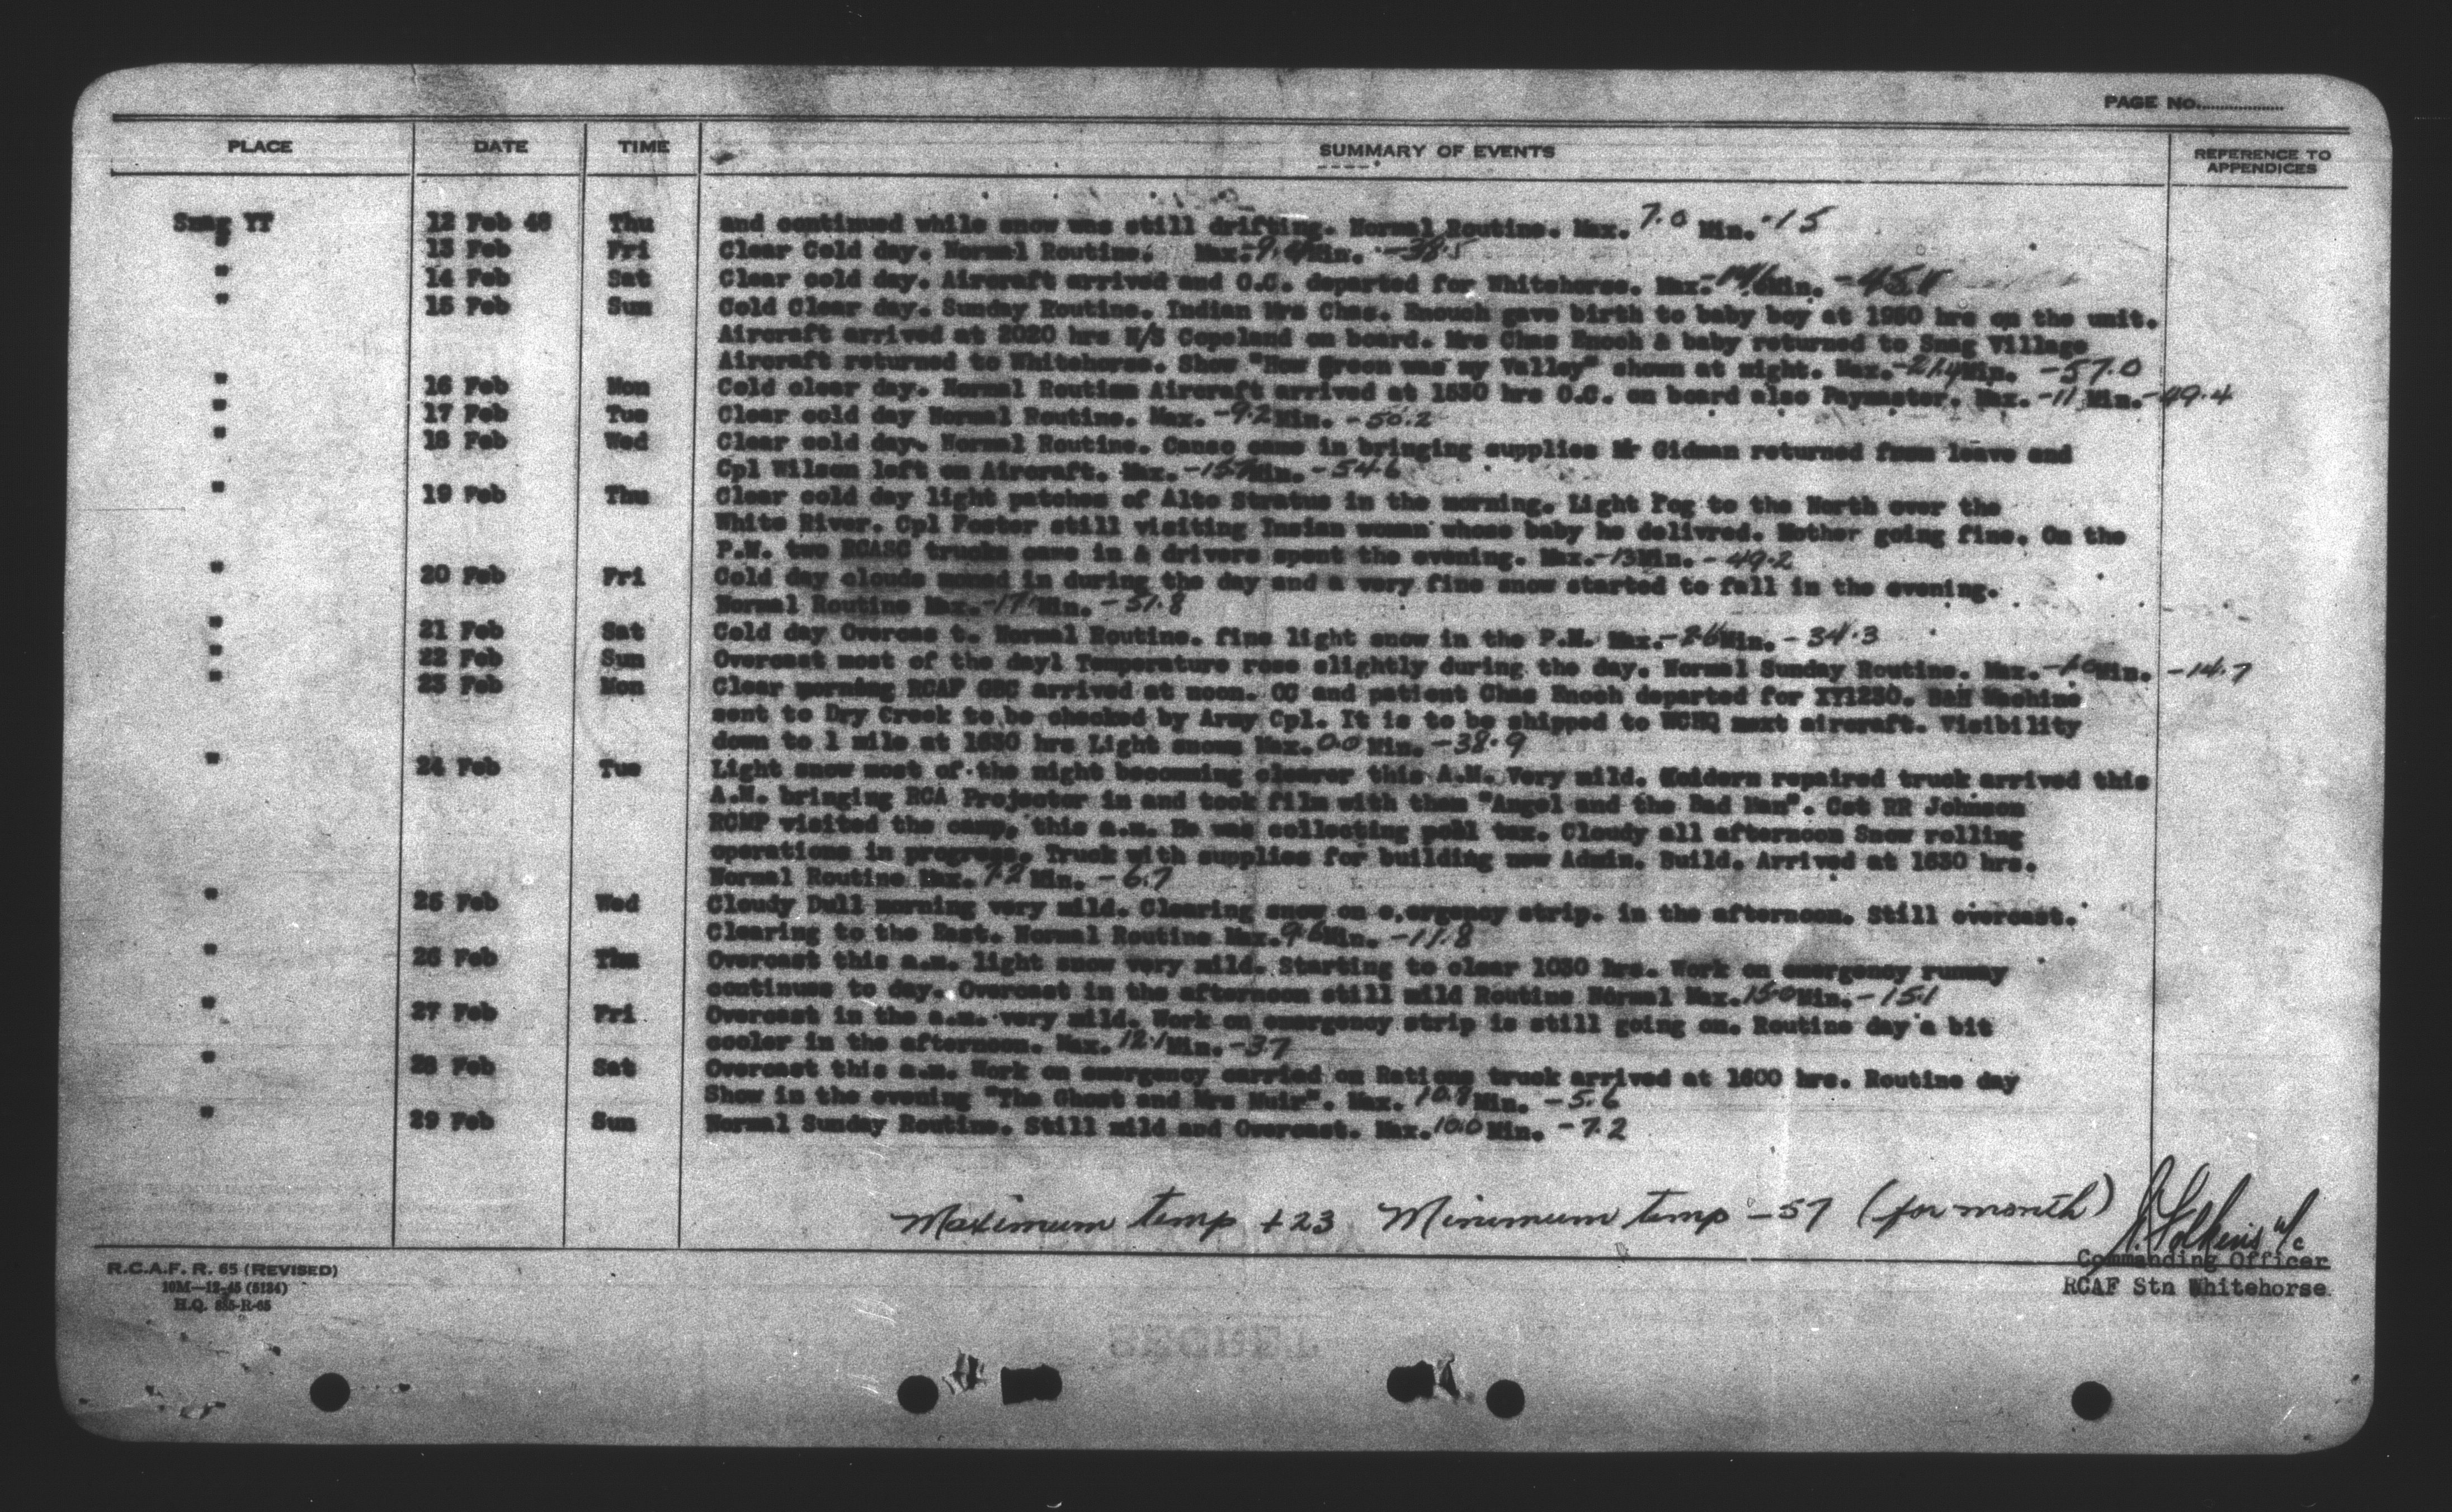 PAGE No....................
PLACE DATE TIME SUMMARY OF EVENTS REFERENCE TO APPENDICES
Snag YT 12 Feb 48 Thu and continued while snow was still drifting. Normal Routine. Max. 7.0 Min. -15
" 13 Feb Fri Clear Cold day. Normal Routine. Max. Min. -38.5
" 14 Feb Sat Clear cold day. Aircraft arrived and O.C. departed for Whitehorse. Max. Min.
" 15 Feb Sun Cold Clear day. Sunday Routine. Indian Mrs Chas. Enouch gave birth to baby boy at 1950 hrs on the unit.
Aircraft arrived at 2020 hrs N/S Copeland on board. Mrs Chas Enoch & baby returned to Snag Village
Aircraft returned to Whitehorse. Show "How Green was my Valley" shown at night. Max. -21.4 Min. -57.0
" 16 Feb Mon Cold clear day. Normal Routine Aircraft arrived at 1530 hrs O.C. on board also Paymaster. Max. -11 Min. -49.4
" 17 Feb Tue Clear cold day Normal Routine. Max. -9.2 Min. -50.2
" 18 Feb Wed Clear cold day. Normal Routine. Canso came in bringing supplies Mr Gidman returned from leave and
Cpl Wilson left on Aircraft. Max. Min. -54.6
" 19 Feb Thu Clear cold day light patches of Alto Stratus in the morning. Light Fog to the North over the
White River. Cpl Foster still visiting Indian woman whose baby he delivred. Mother going fine. On the
P.M. two RCASC trucks came in & drivers spent the evening. Max. -13 Min. -49.2
" 20 Feb Fri Cold day clouds moned in during the day and a very fine snow started to fall in the evening.
Normal Routine Max. -17 Min. -51.8
" 21 Feb Sat Cold day Overcas t. Normal Routine. fine light snow in the P.M. Max. Min. -34.3
" 22 Feb Sun Overcast most of the dayl Temperature rose slightly during the day. Normal Sunday Routine. Max. Min. -14.7
" 23 Feb Mon Clear morning RCAF arrived at noon. OC and patient Chas Enoch departed for XY1230. Machine
sent to Dry Creek to be checked by Army Cpl. It is to be shipped to next aircraft. Visibility
down to 1 mile at 1630 hrs Light snows Max. 0.0 Min. -38.9
" 24 Feb Tue Light snow most of the night becomming clearer this A.M. Very mild. repaired truck arrived this
A.M. bringing RCA Projector in and took film with them "Angel and the Bad Man". Cst RR Johnson
RCMP visited the camp, this a.m. He was collecting poll tax. Cloudy all afternoon Snow rolling
operations in progress. Truck with supplies for building new Admin. Build. Arrived at 1630 hrs.
Normal Routine Max. 7.2 Min. -6.7
" 25 Feb Wed Cloudy Dull morning very mild. Clearing snow on e.ergency strip. in the afternoon. Still overcast.
Clearing to the East. Normal Routine Max. 9.6 Min. -11.8
" 26 Feb Thu Overcast this a.m. light snow very mild. Starting to clear 1030 hrs. Work on emergency runway
continues to day. Overcast in the afternoon still mild Routine Normal Max. 15.0 Min. -15.1
" 27 Feb Fri Overcast in the a.m. very mild. Work on emergency strip is still going on. Routine day a bit
cooler in the afternoon. Max. 12.1 Min. -3.7
" 28 Feb Sat Overcast this a.m. Work on emergency carried on Rations truck arrived at 1600 hrs. Routine day
Show in the evening "The Ghost and Mrs Muir". Max. 10.8 Min. -5.6
" 29 Feb Sun Normal Sunday Routine. Still mild and Overcast. Max. 10.0 Min. -7.2
Maximum temp +23 Minimum temp -57 (for month)
Commanding Officer
RCAF Stn Whitehorse
R.C.A.F. R. 65 (REVISED)
10M—12-45 (5134)
H.Q. 885-R-65
SECRET